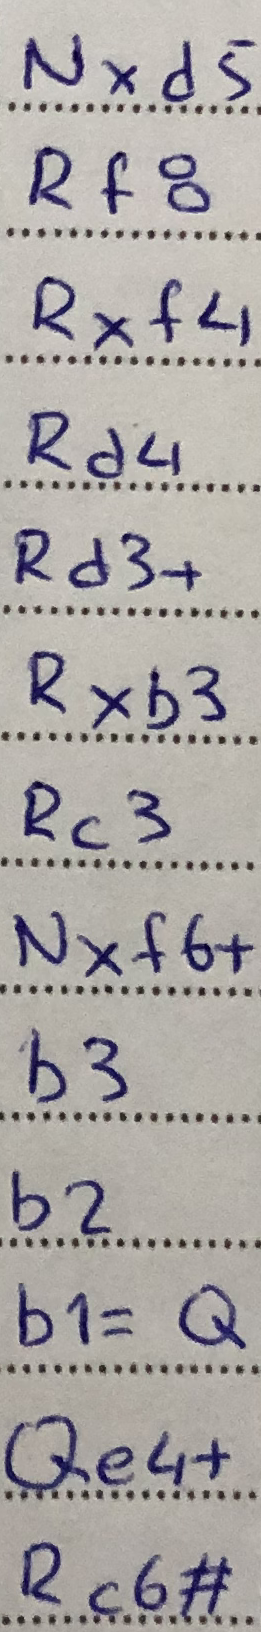 Nxd5
Rf8
Rxf4
Rd4
Rd3+
Rxb3
Rc3
Nxf6+
b3
b2
b1=Q
Qe4+
Rc6#